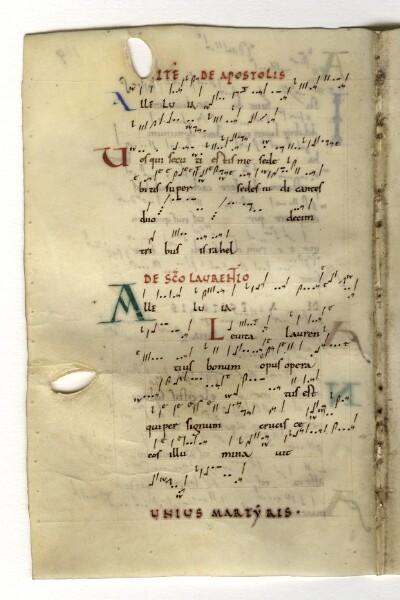 ITĒ DE APOSTOLIS
ALLE LU IA
Uos qui secu ti estis me sede
bitis super sedes iu di cantes
duo decim
tri bus israhel
DE SC̄O LAURENTIO
ALLE LU IA
Leuita lauren
tius bonum opus opera
tus est
qui per signum crucis ce
cos illu mina uit
UNIUS MARTYRIS.